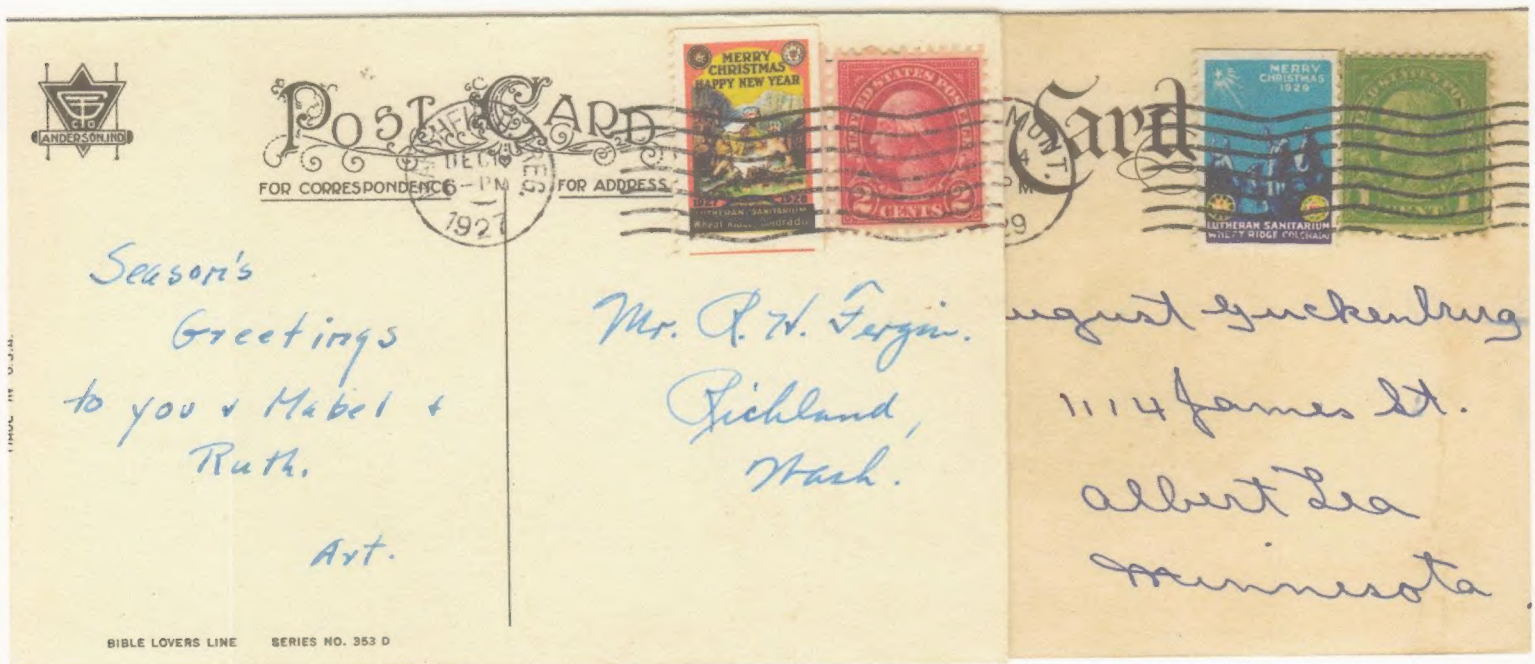 ANDERSON, IND
POST CARD
FOR CORRESPONDENCE
FOR ADDRESS
DEC 1
6-PM
1927
MERRY
CHRISTMAS
HAPPY NEW YEAR
1927 1928
LUTHERAN SANITARIUM
Wheat Ridge, Colorado
UNITED STATES POSTAGE
2 CENTS 2
Season's
Greetings
to you & Mabel &
Ruth.
Art.
Mr. R. H. Fergin.
Richland,
Wash.
MADE IN U.S.A.
BIBLE LOVERS LINE SERIES NO. 353 D
Card
MERRY
CHRISTMAS
1929
LUTHERAN SANITARIUM
WHEAT RIDGE COLORADO
1 CENT 1
ugust Guckenburg
1114 James St.
Albert Lea
Minnesota